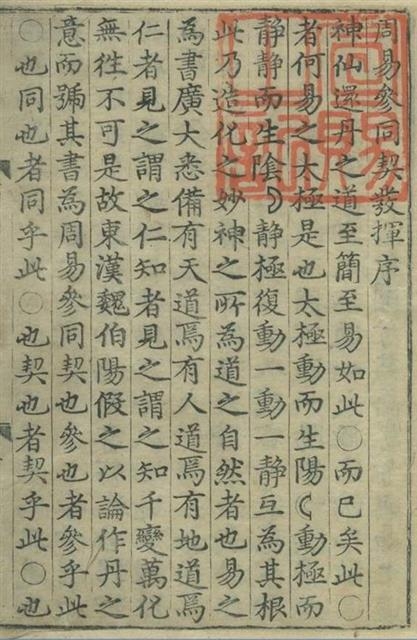 周易參同契發揮序
神仙還丹之道至簡至易如此○而已矣此○
者何易之太極是也太極動而生陽☾動極而
靜靜而生陰☽靜極復動一動一靜互為其根
此乃造化之妙神之所為道之自然者也易之
為書廣大悉備有天道焉有人道焉有地道焉
仁者見之謂之仁知者見之謂之知千變萬化
無徃不可是故東漢魏伯陽假之以論作丹之
意而號其書為周易參同契也參也者參乎此
○也同也者同乎此○也契也者契乎此○也